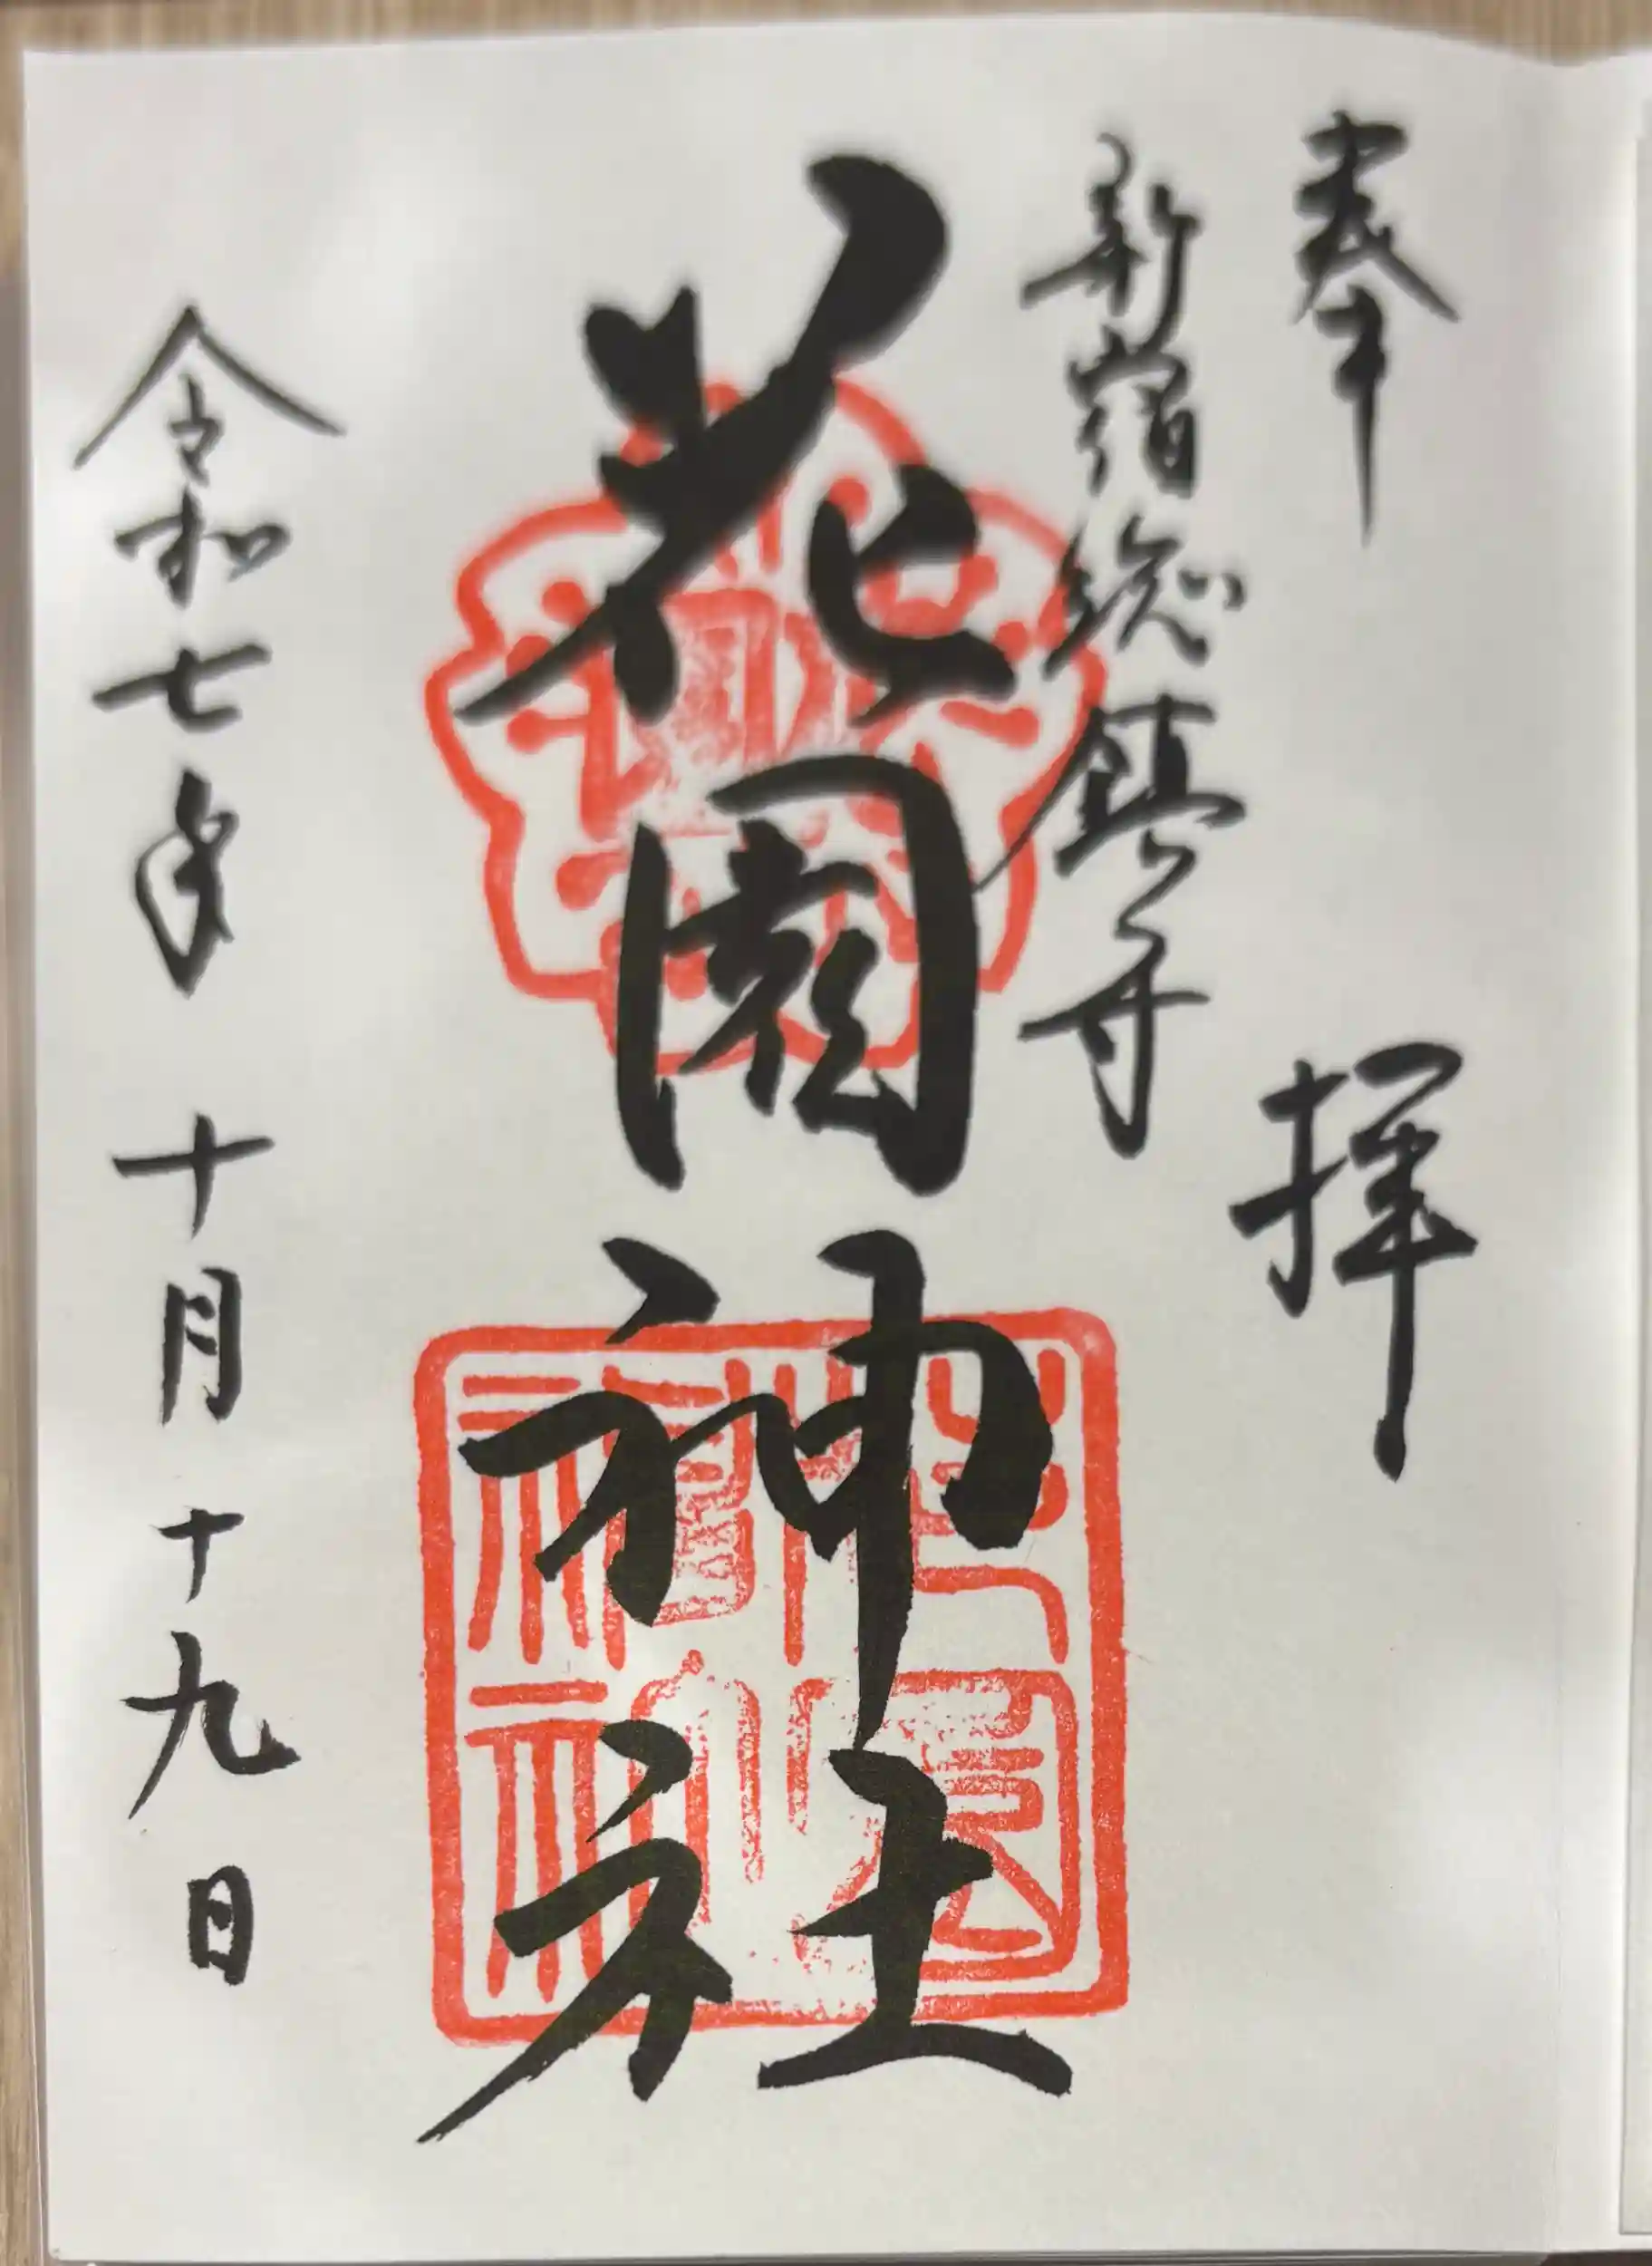 奉拝
新宿総鎮守
花園神社
令和七年十月十九日
花園神社